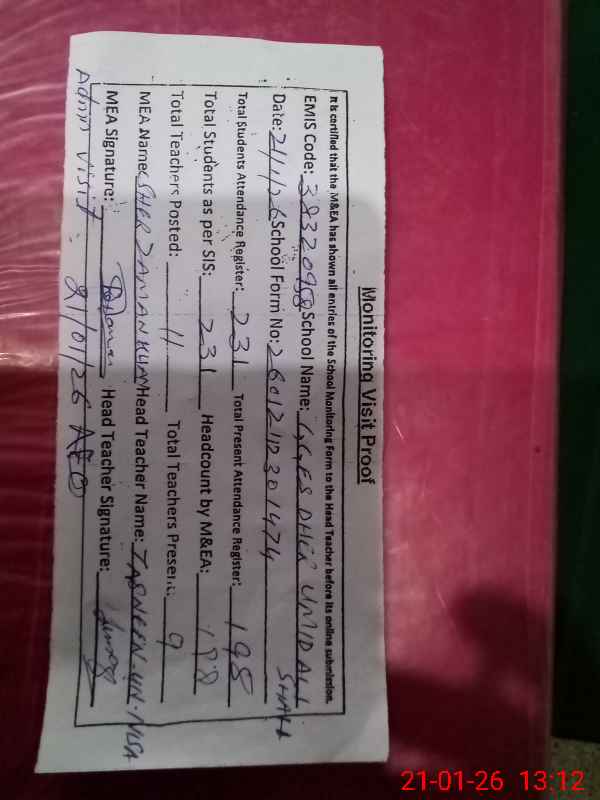 Monitoring Visit Proof
It is certified that the M&EA has shown all entries of the School Monitoring Form to the Head Teacher before its online submission.
EMIS Code: 38320958 School Name: GGES DHER UMID ALI SHAH
Date: 21/1/26 School Form No: 260121123014 74
Total Students Attendance Register: 231 Total Present Attendance Register: 198
Total Students as per SIS: 231 Headcount by M&EA: 198
Total Teachers Posted: 11 Total Teachers Present: 9
MEA Name: SHER ZAMAN KHAN Head Teacher Name: TASNEEN-UN-NISA
MEA Signature: Head Teacher Signature:
Admn visit 21/01/26 AEO
21-01-26 13:12